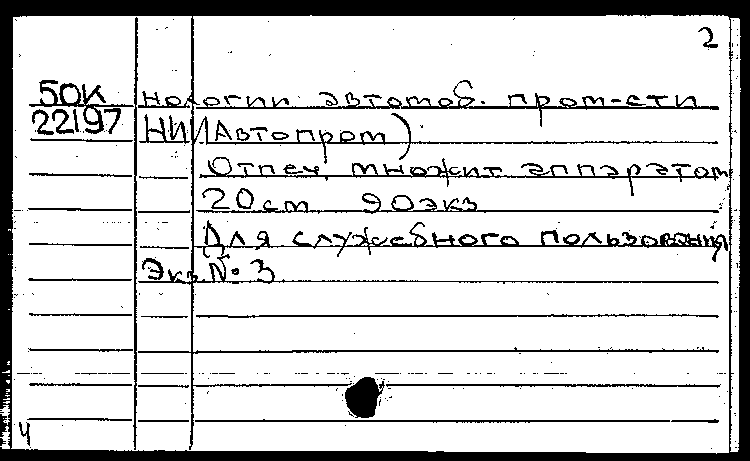 2
50К нологии автомоб. пром-сти
22197 НИИАвтопром)
Отпеч. множит аппаратом
20см 90экз
Для служебного пользования
Экз.№ 3
4